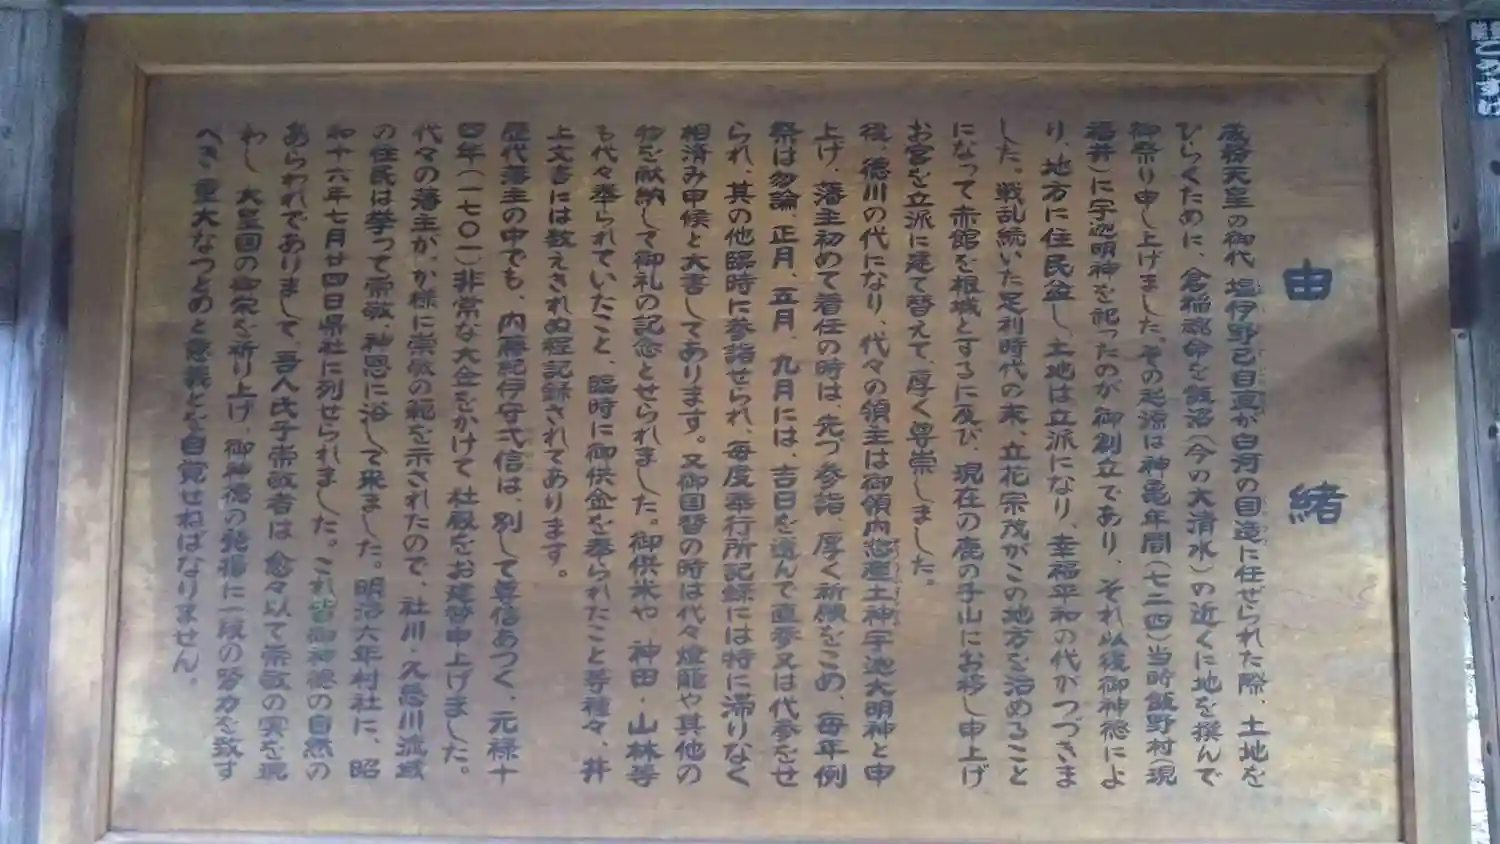 由緒
成務天皇の御代 塩伊野己自直が白河の国造に任ぜられた際、土地を
ひらくために、倉稲魂命を飯沼(今の大清水)の近くに地を撰んで
御祭り申し上げました。その起源は神亀年間(七二四)当時飯野村(現
福井)に宇迦明神を祀ったのが御創立であり、それ以後御神徳によ
り、地方に住民益し、土地は立派になり、幸福平和の代がつづきま
した。戦乱続いた足利時代の末、立花宗茂がこの地方を治めること
になって赤館を根城とするに及び、現在の鹿の子山にお移し申上げ
お宮を立派に建て替えて、厚く尊崇しました。
後、徳川の代になり、代々の領主は御領内惣産土神宇迦大明神と申
上げ、藩主初めて着任の時は、先づ参詣、厚く祈願をこめ、毎年例
祭は勿論、正月、五月、九月には、吉日を選んで直参又は代参をせ
られ、其の他臨時に参詣せられ、毎度奉行所記録には特に滞りなく
相済み申候と大書してあります。又御国替の時は代々燈籠や其他の
物を献納して御礼の記念とせられました。御供米や 神田・山林等
も代々奉られていたこと、臨時に御供金を奉られたこと等種々、井
上文書には数えきれぬ程記録されてあります。
歴代藩主の中でも、内藤紀伊守弌信は、別して尊信あつく、元禄十
四年(一七〇一)非常な大金をかけて 社殿をお建替申上げました。
代々の藩主が、か様に崇敬の範を示されたので、社川・久慈川流域
の住民は挙って崇敬、神恩に浴して来ました。明治六年村社に、昭
和十六年七月廿四日県社に列せられました。これ皆御神徳の自然の
あらわれでありまして、吾人氏子崇敬者は 愈々以て崇敬の実を現
わし 大皇国の御栄を祈り上げ、御神徳の発揚に一段の努力を致す
べき 重大なつとめと意義とを自覚せねばなりません。